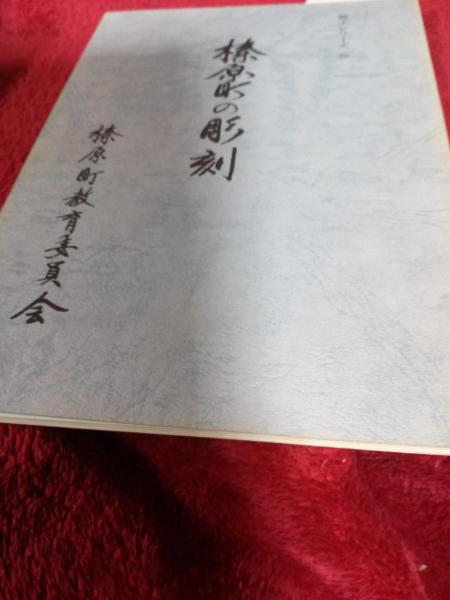 榛原町の彫刻
榛原町教育委員会